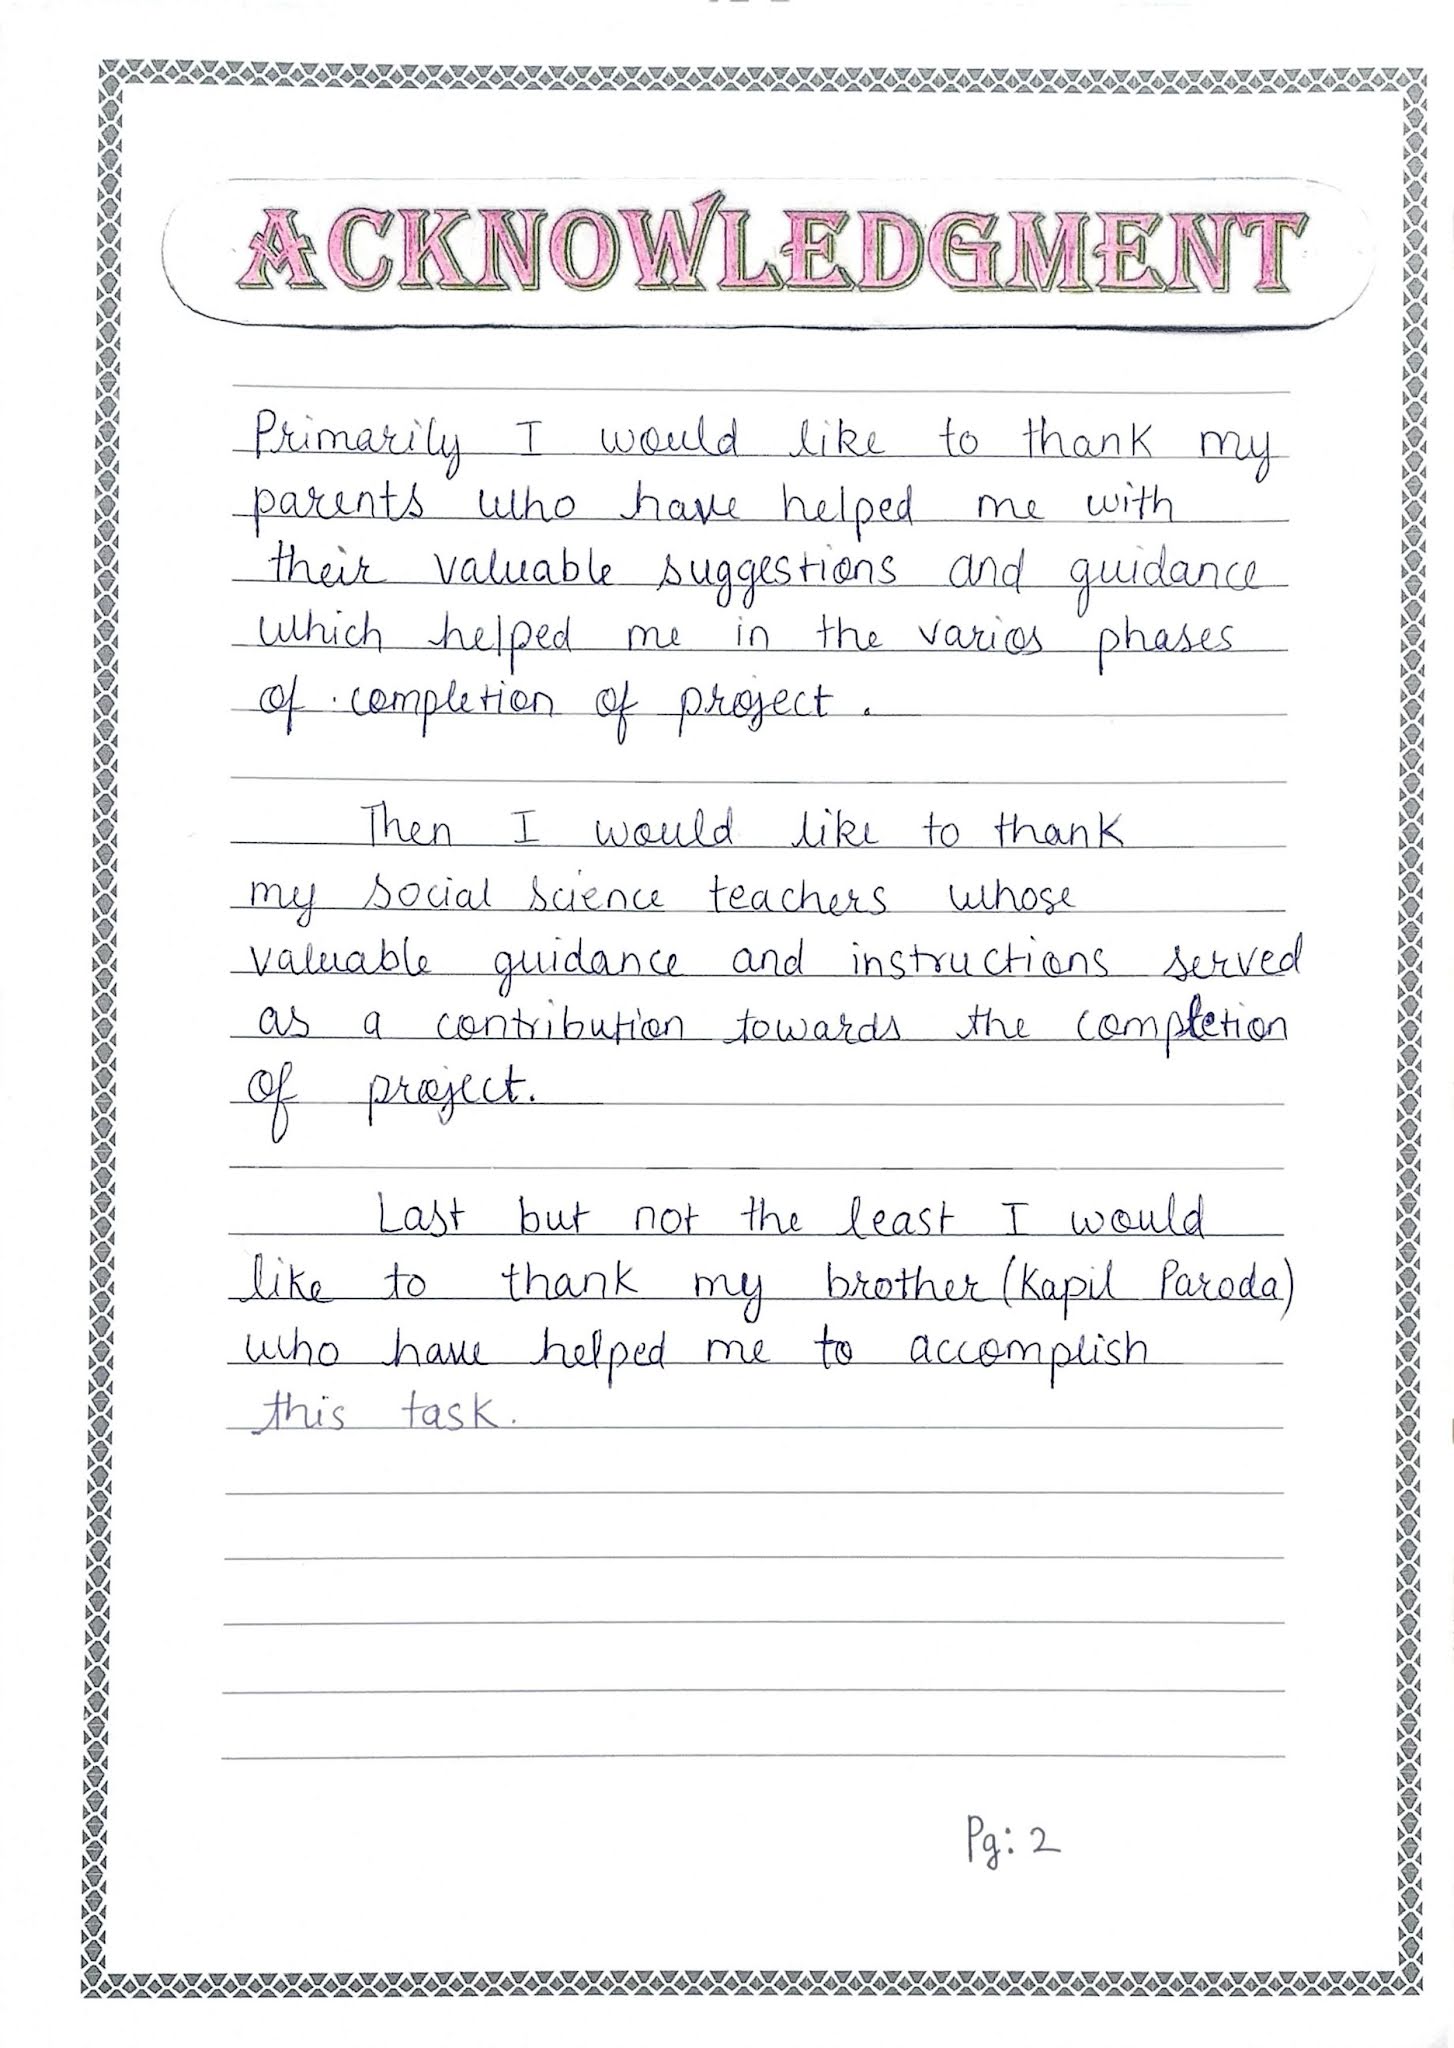 ACKNOWLEDGMENT
Primarily I would like to thank my
parents who have helped me with
their valuable suggestions and guidance
which helped me in the varios phases
of completion of project.
Then I would like to thank
my social science teachers whose
valuable guidance and instructions served
as a contribution towards the completion
of project.
Last but not the least I would
like to thank my brother (Kapil Paroda)
who have helped me to accomplish
this task.
Pg: 2